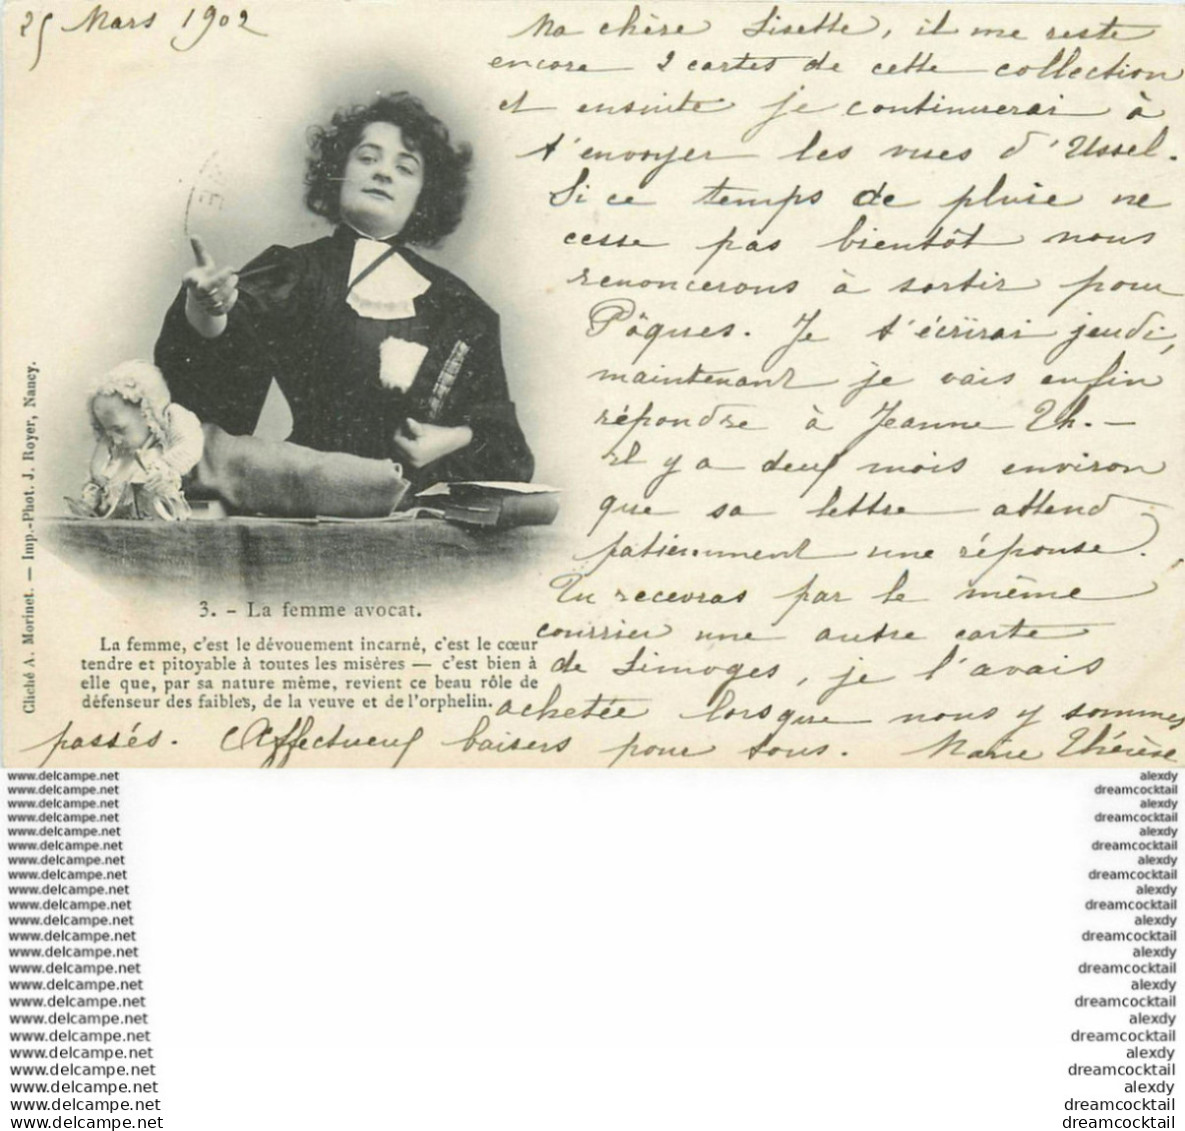 25 Mars 1902
Ma chère Lisette, il me reste
encore 2 cartes de cette collection
et ensuite je continuerai à
t'envoyer les vues d'Ussel.
Si ce temps de pluie ne
cesse pas bientôt nous
renoncerons à sortir pour
Pâques. Je t'écrirai jeudi,
maintenant je vais enfin
répondre à Jeanne Th. -
Il y a deux mois environ
que sa lettre attend
patiemment une réponse.
Tu recevras par le même
courrier une autre carte
de Limoges, je l'avais
achetée lorsque nous y sommes
passés. Affectueux baisers pour tous. Marie Thérèse
Cliché A. Morinet. — Imp.-Phot. J. Royer, Nancy.
3. - La femme avocat.
La femme, c'est le dévouement incarné, c'est le cœur
tendre et pitoyable à toutes les misères — c'est bien à
elle que, par sa nature même, revient ce beau rôle de
défenseur des faibles, de la veuve et de l'orphelin.
www.delcampe.net
www.delcampe.net
www.delcampe.net
www.delcampe.net
www.delcampe.net
www.delcampe.net
www.delcampe.net
www.delcampe.net
www.delcampe.net
www.delcampe.net
www.delcampe.net
www.delcampe.net
www.delcampe.net
www.delcampe.net
www.delcampe.net
www.delcampe.net
www.delcampe.net
www.delcampe.net
www.delcampe.net
www.delcampe.net
www.delcampe.net
www.delcampe.net
www.delcampe.net
alexdy
dreamcocktail
alexdy
dreamcocktail
alexdy
dreamcocktail
alexdy
dreamcocktail
alexdy
dreamcocktail
alexdy
dreamcocktail
alexdy
dreamcocktail
alexdy
dreamcocktail
alexdy
dreamcocktail
alexdy
dreamcocktail
alexdy
dreamcocktail
dreamcocktail